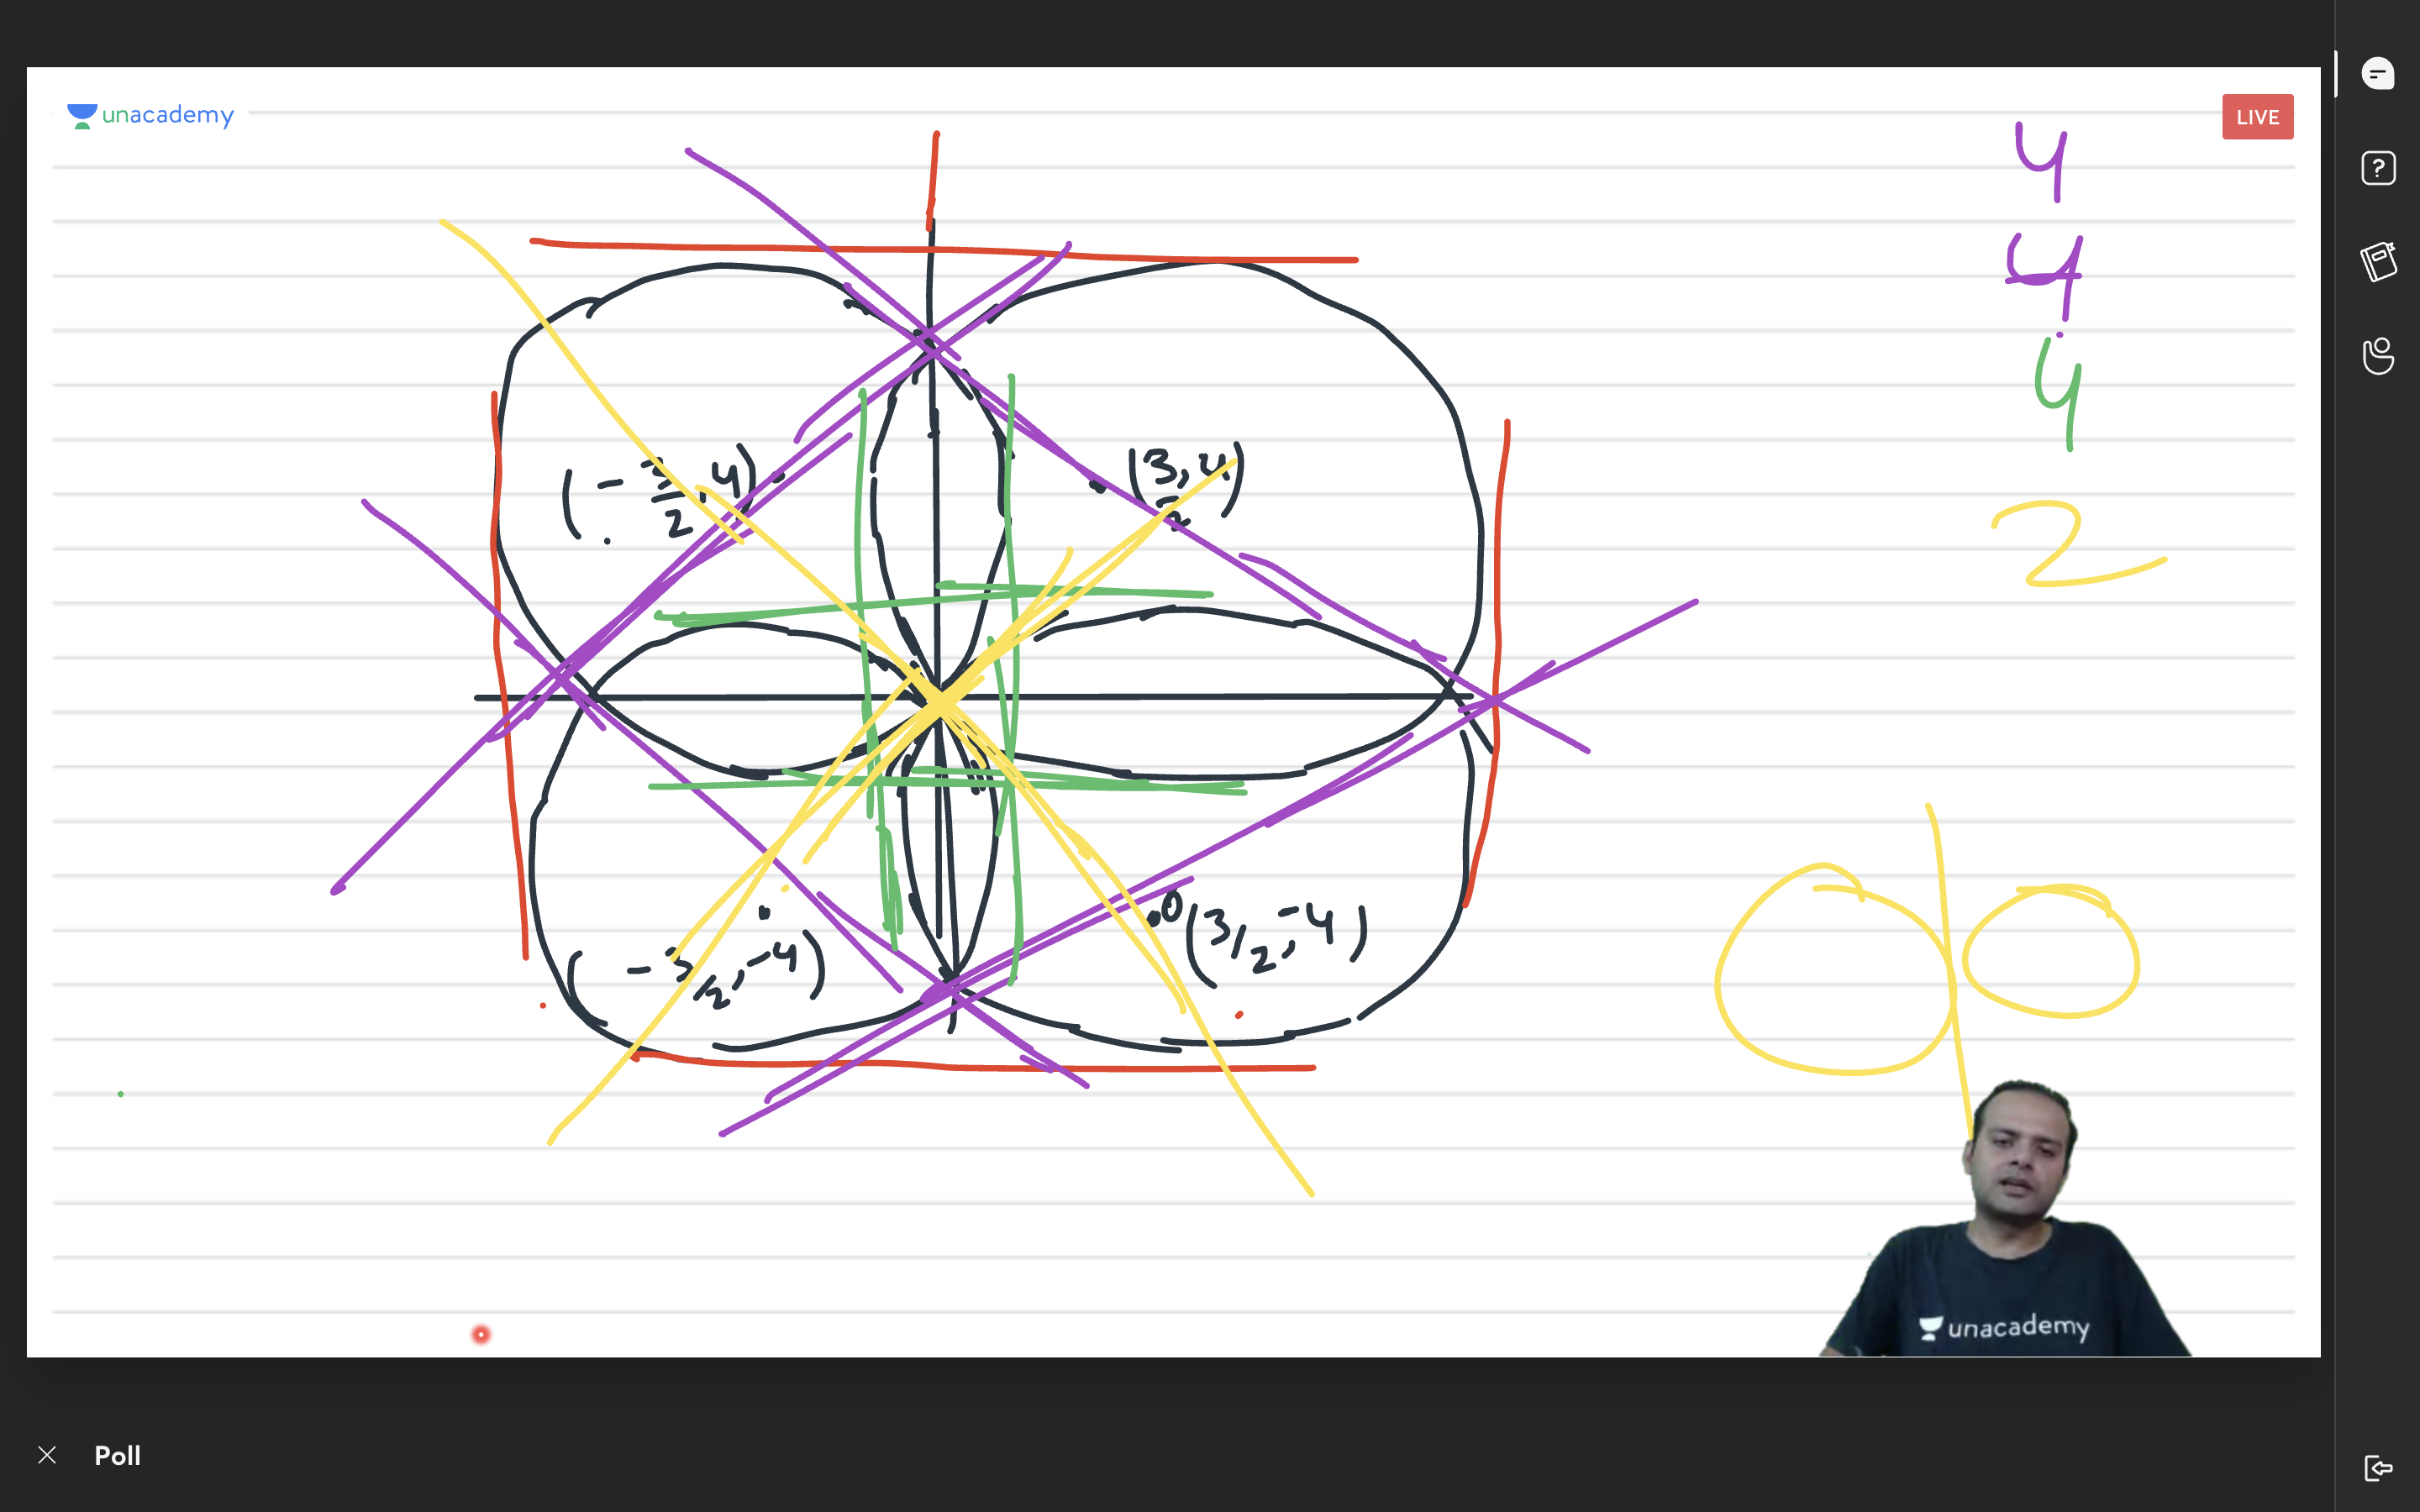 unacademy
LIVE
4
4
4
2
(-3/2, 4)
(3/2, 4)
(-3/2, -4)
(3/2, -4)
unacademy
Poll